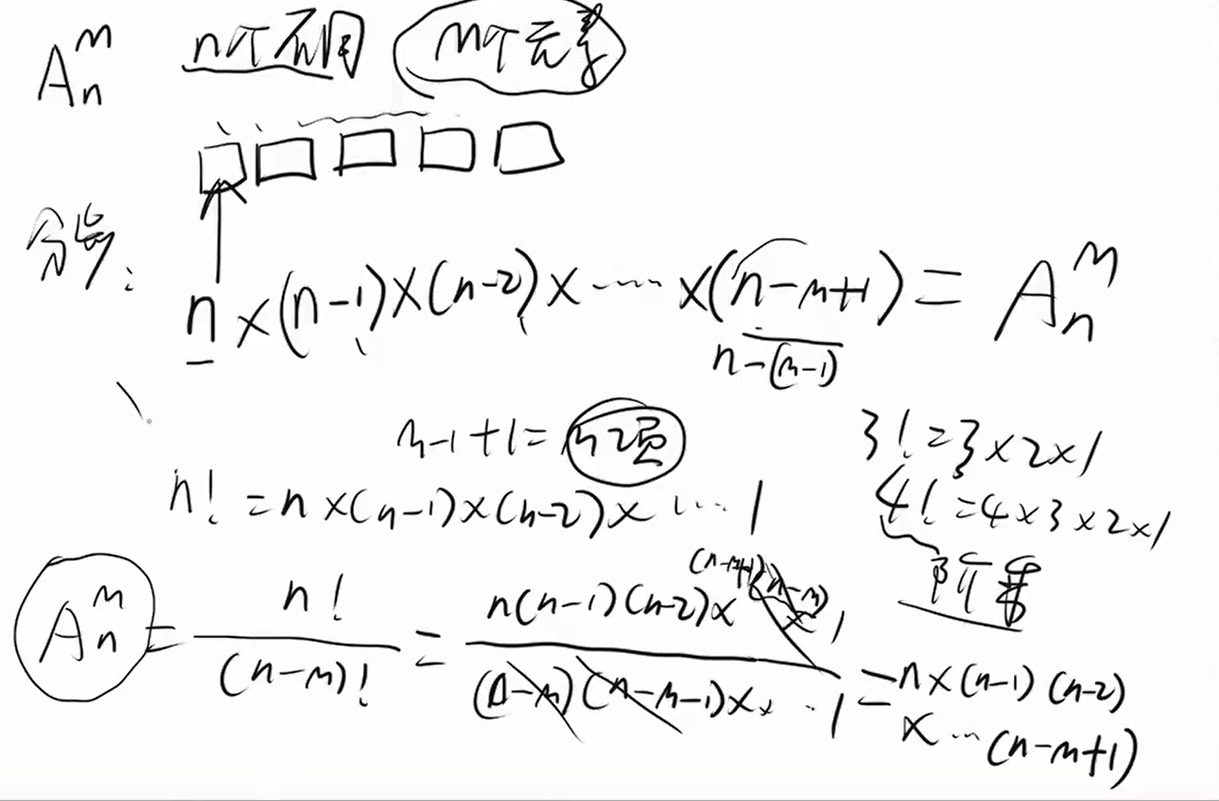 Aₙᵐ n个不同 m个元素
分步: n×(n-1)×(n-2)×……×(n-m+1)=Aₙᵐ
n-(m-1)
m-1+1=m项
3!=3×2×1
n!=n×(n-1)×(n-2)×…1
4!=4×3×2×1
阶乘
Aₙᵐ=n!/(n-m)!=n(n-1)(n-2)×(n-m+1)(n-m)×1/(n-m)(n-m-1)××…1=n×(n-1)(n-2)
×…(n-m+1)